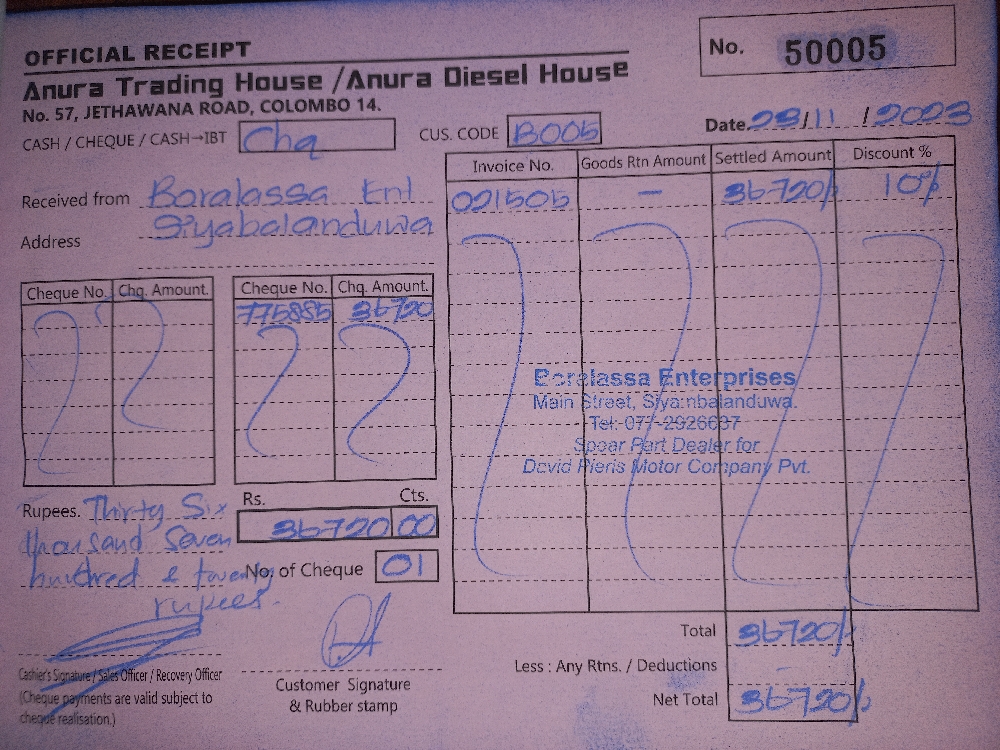 OFFICIAL RECEIPT
No. 50005
Anura Trading House /Anura Diesel House
No. 57, JETHAWANA ROAD, COLOMBO 14.
CASH / CHEQUE / CASH→IBT Chq
CUS. CODE B005
Date. 23/11/2023
Received from Boralassa Ent
Address Siyabalanduwa
Invoice No. Goods Rtn Amount Settled Amount Discount %
021505 — 36720/- 10%
Cheque No. Chq. Amount. Cheque No. Chq. Amount.
775885 36720
Boralassa Enterprises
Main Street, Siyambalanduwa.
Tel: 077-2926637
Spear Part Dealer for
David Pieris Motor Company Pvt.
Rupees. Thirty Six
thousand Seven
hundred & twenty
rupees.
Rs. Cts.
36720 00
No. of Cheque 01
Total 36720/-
Less : Any Rtns. / Deductions -
Net Total 36720/-
Cashier's Signature / Sales Officer / Recovery Officer
(Cheque payments are valid subject to
cheque realisation.)
Customer Signature
& Rubber stamp